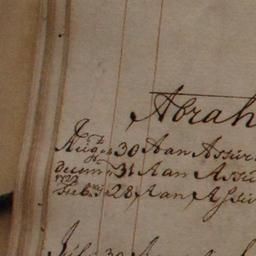 Abrah
Augs 30 Aan Assur
Decem 31 Aan Assu
1722
Feb 28 Aan Assu